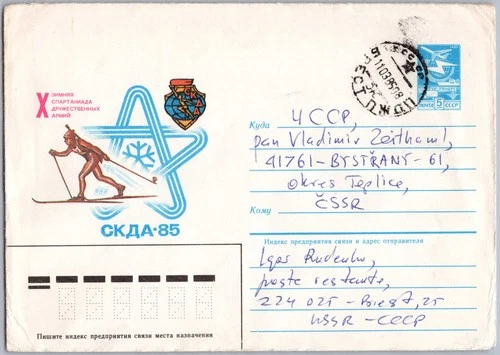 X ЗИМНЯЯ
СПАРТАКИАДА
ДРУЖЕСТВЕННЫХ
АРМИЙ
СКДА·85
БРЕСТ
СССР
ПОЧТА 5 СССР
Куда ЧССР,
pan Vladimir Zeithaml,
41761-BYSTŘANY-61,
okres Teplice,
ČSSR
Кому
Индекс предприятия связи и адрес отправителя
Igor Rudenko,
poste restante,
224025-Brest,25
USSR-СССР
Пишите индекс предприятия связи места назначения